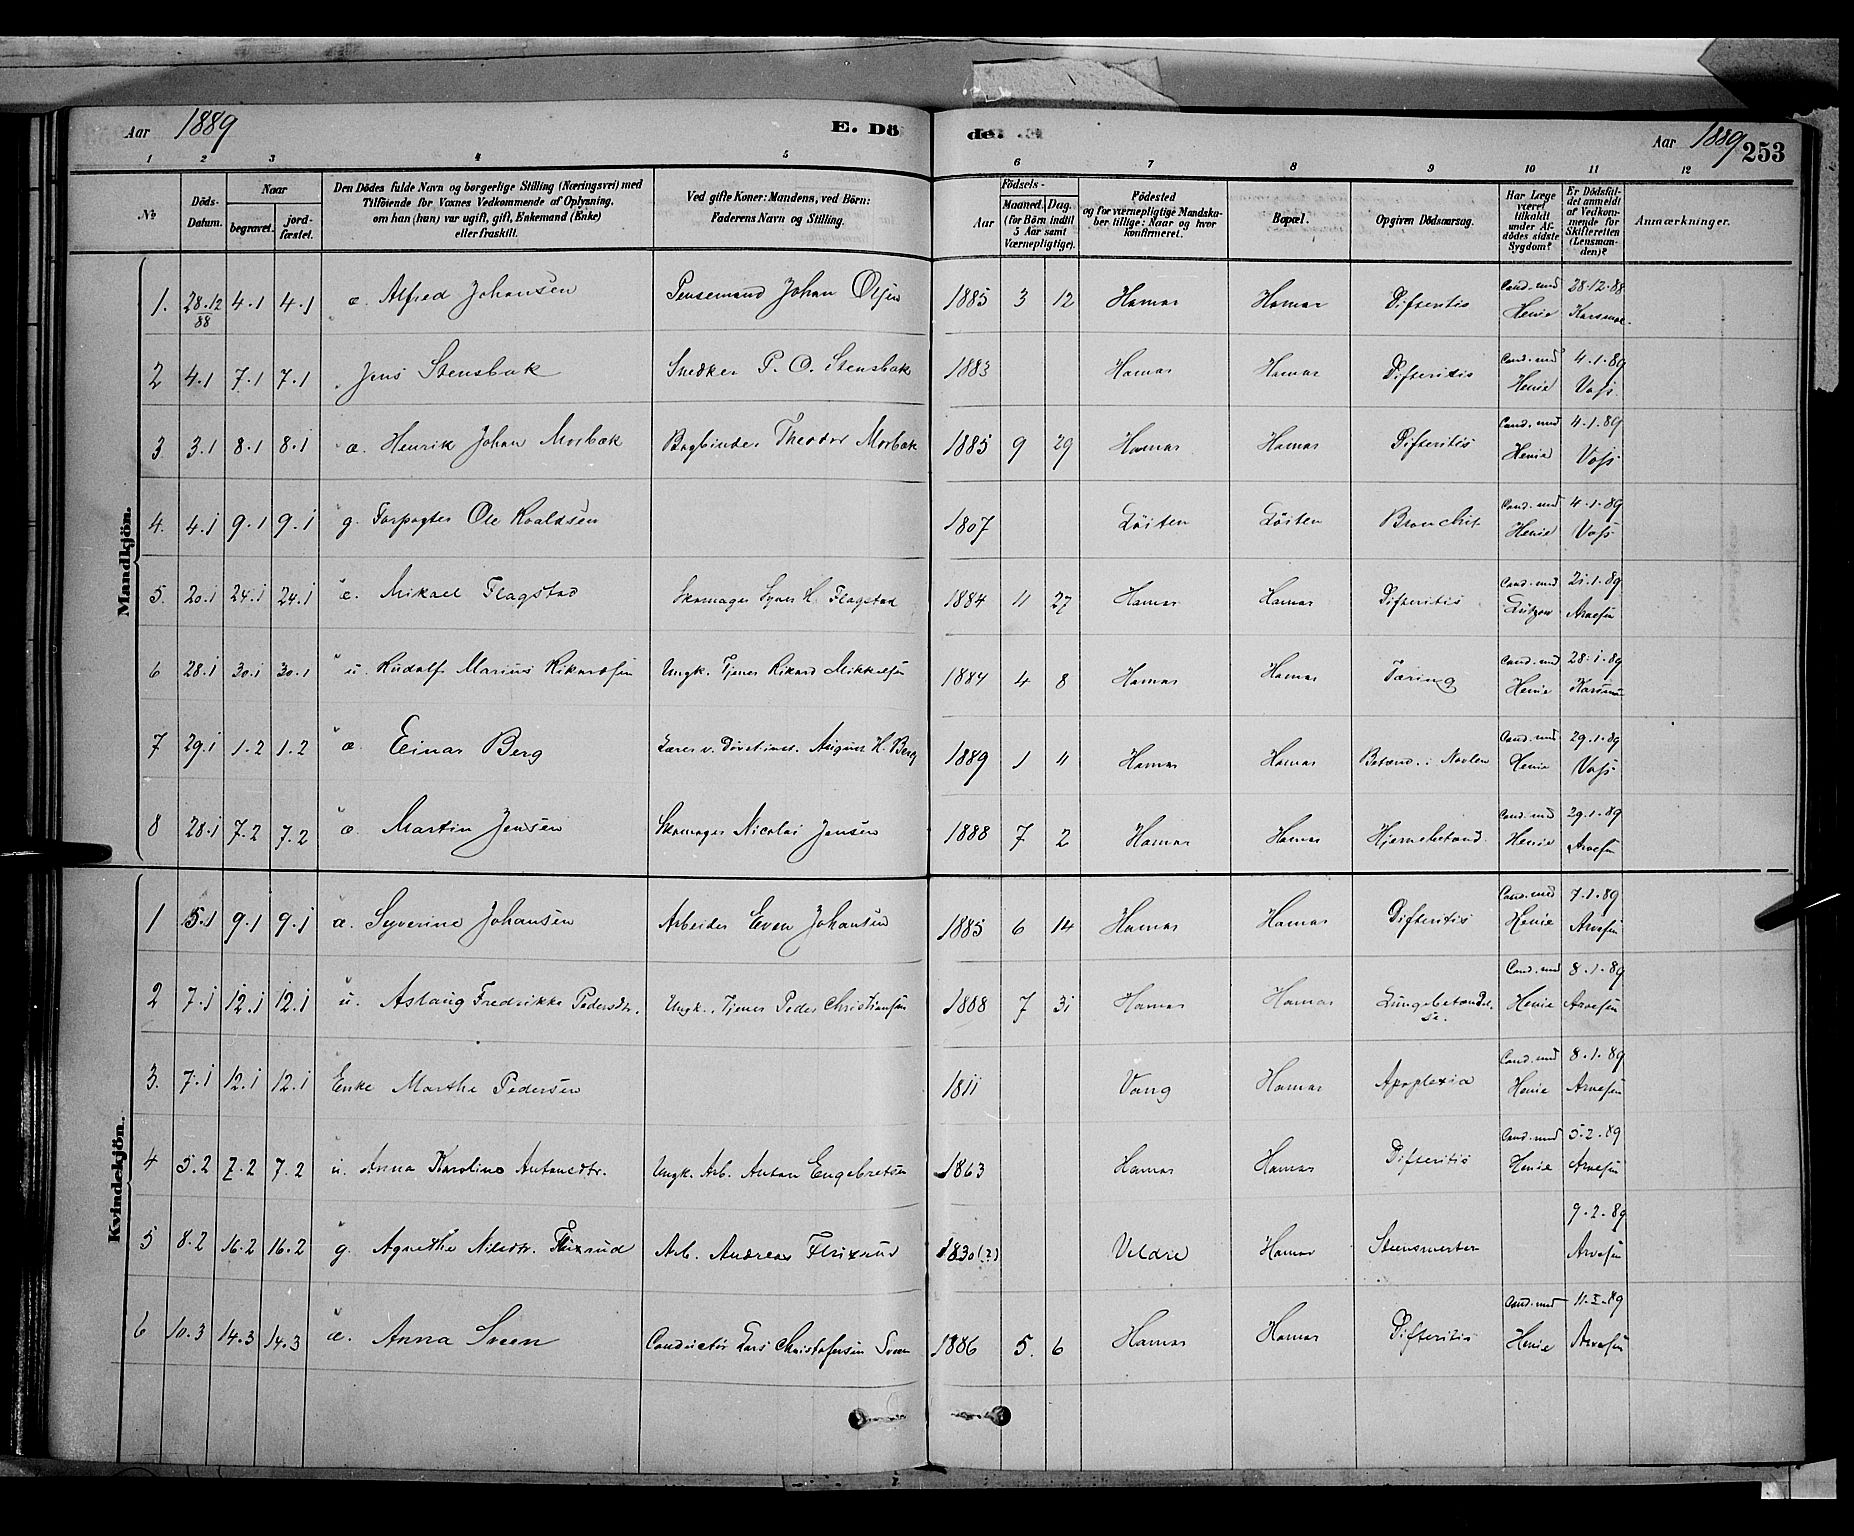 Aar 1889 E. Dö de. Aar 1889 253
1 2 3 4 5 6 7 8 9 10 11 12
No.
Döds-Datum.
Naar
begravet.
jordfæstet.
Den Dödes fulde Navn og borgerlige Stilling (Næringsvei) med
Tilföiende for Voxnes Vedkommende af Oplysning,
om han (hun) var ugift, gift, Enkemand (Enke)
eller fraskilt.
Ved gifte Koner: Mandens, ved Börn:
Faderens Navn og Stilling.
Födsels-
Aar Maaned. Dag.
(for Börn indtil
5 Aar samt
Værnepligtige).
Födested
og for værnepligtige Mandskaber tillige: Naar og hvor
konfirmeret.
Bopæl.
Opgiven Dödsaarsag.
Har Læge
været
tilkaldt
under Afdödes sidste
Sygdom?
Er Dödsfaldet anmeldt
af Vedkommende for
Skifteretten
(Lensmanden)?
Anmærkninger.
Mandkjön.
1. 28.12 88 4.1 4.1 æ. Alfred Johansen Johan Olsen 1885 3 12 Hamar Hamar Difteritis Cand. med Henie 28.12.88
2 4.1 7.1 7.1 Jens Stensbak Snedker P. O. Stensbak 1883 Hamar Hamar Difteritis Cand. med Henie 4.1.89 Voss
3 3.1 8.1 8.1 æ. Henrik Johan Morbæk Bogbinder Theodor Morbæk 1885 9 29 Hamar Hamar Difteritis Cand. med Henie 4.1.89 Voss
4. 4.1 9.1 9.1 g. Forpagter Ole Roaldsen 1807 Löiten Löiten Bronchit Cand. med Henie 4.1.89 Voss
5. 20.1 24.1 24.1 æ. Mikael Flagstad Skomager Syver H. Flagstad 1884 11 27 Hamar Hamar Difteritis Cand. med Lützow 21.1.89 Arvesen
6 28.1 30.1 30.1 u. Rudolf Marius Rikardsen Ungk. Tjener Rikard Mikkelsen 1884 4 8 Hamar Hamar Tæring Cand. med Henie 28.1.89
7 29.1 1.2 1.2 æ. Einar Berg Lærer v. Døvstinst. August H. Berg 1889 1 11 Hamar Hamar Betænd. i Navlen Cand. med Henie 29.1.89 Voss
8 28.1 7.2 7.2 æ. Martin Jensen Skomager Nicolai Jensen 1888 7 2 Hamar Hamar Hjernebetænd. Cand. med Henie 29.1.89 Arvesen
Kvindekjön.
1 5.1 9.1 9.1 æ. Syverine Johansen Arbeider Even Johansen 1885 6 14 Hamar Hamar Difteritis Cand. med Henie 7.1.89 Arvesen
2 7.1 12.1 12.1 u. Aslaug Fredrikke Pedersdtr. Ungk. Tjener Peder Christiansen 1888 7 31 Hamar Hamar Lungebetændelse. Cand. med Henie 8.1.89 Arvesen
3. 7.1 12.1 12.1 Enke Marthe Pedersen 1811 Vang Hamar Apoplexia Cand. med Henie 8.1.89 Arvesen
4 5.2 7.2 7.2 u. Anna Karoline Antonsdtr. Ungk. Arb. Anton Engebretsen 1863 Hamar Hamar Difteritis Cand. med Henie 5.2.89 Arvesen
5 8.2 16.2 16.2 g. Agnethe Nilsdtr. Flixrud Arb. Andreas Flixrud 1830(?) Veldre Hamar Steensmerter 9.2.89 Arvesen
6 10.3 14.3 14.3 æ. Anna Sveen Conductör Lars Christofersen Sveen 1886 5. 6 Hamar Hamar Difteritis Cand. med Henie 11.3.89 Arvesen